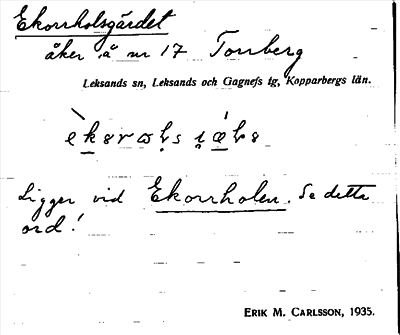 Ekorrholsgärdet
åker å nr 17 Tonberg
Leksands sn, Leksands och Gagnefs tg, Kopparbergs län.
Ligger vid Ekorrholen. Se detta
ord!
ERIK M. CARLSSON, 1935.